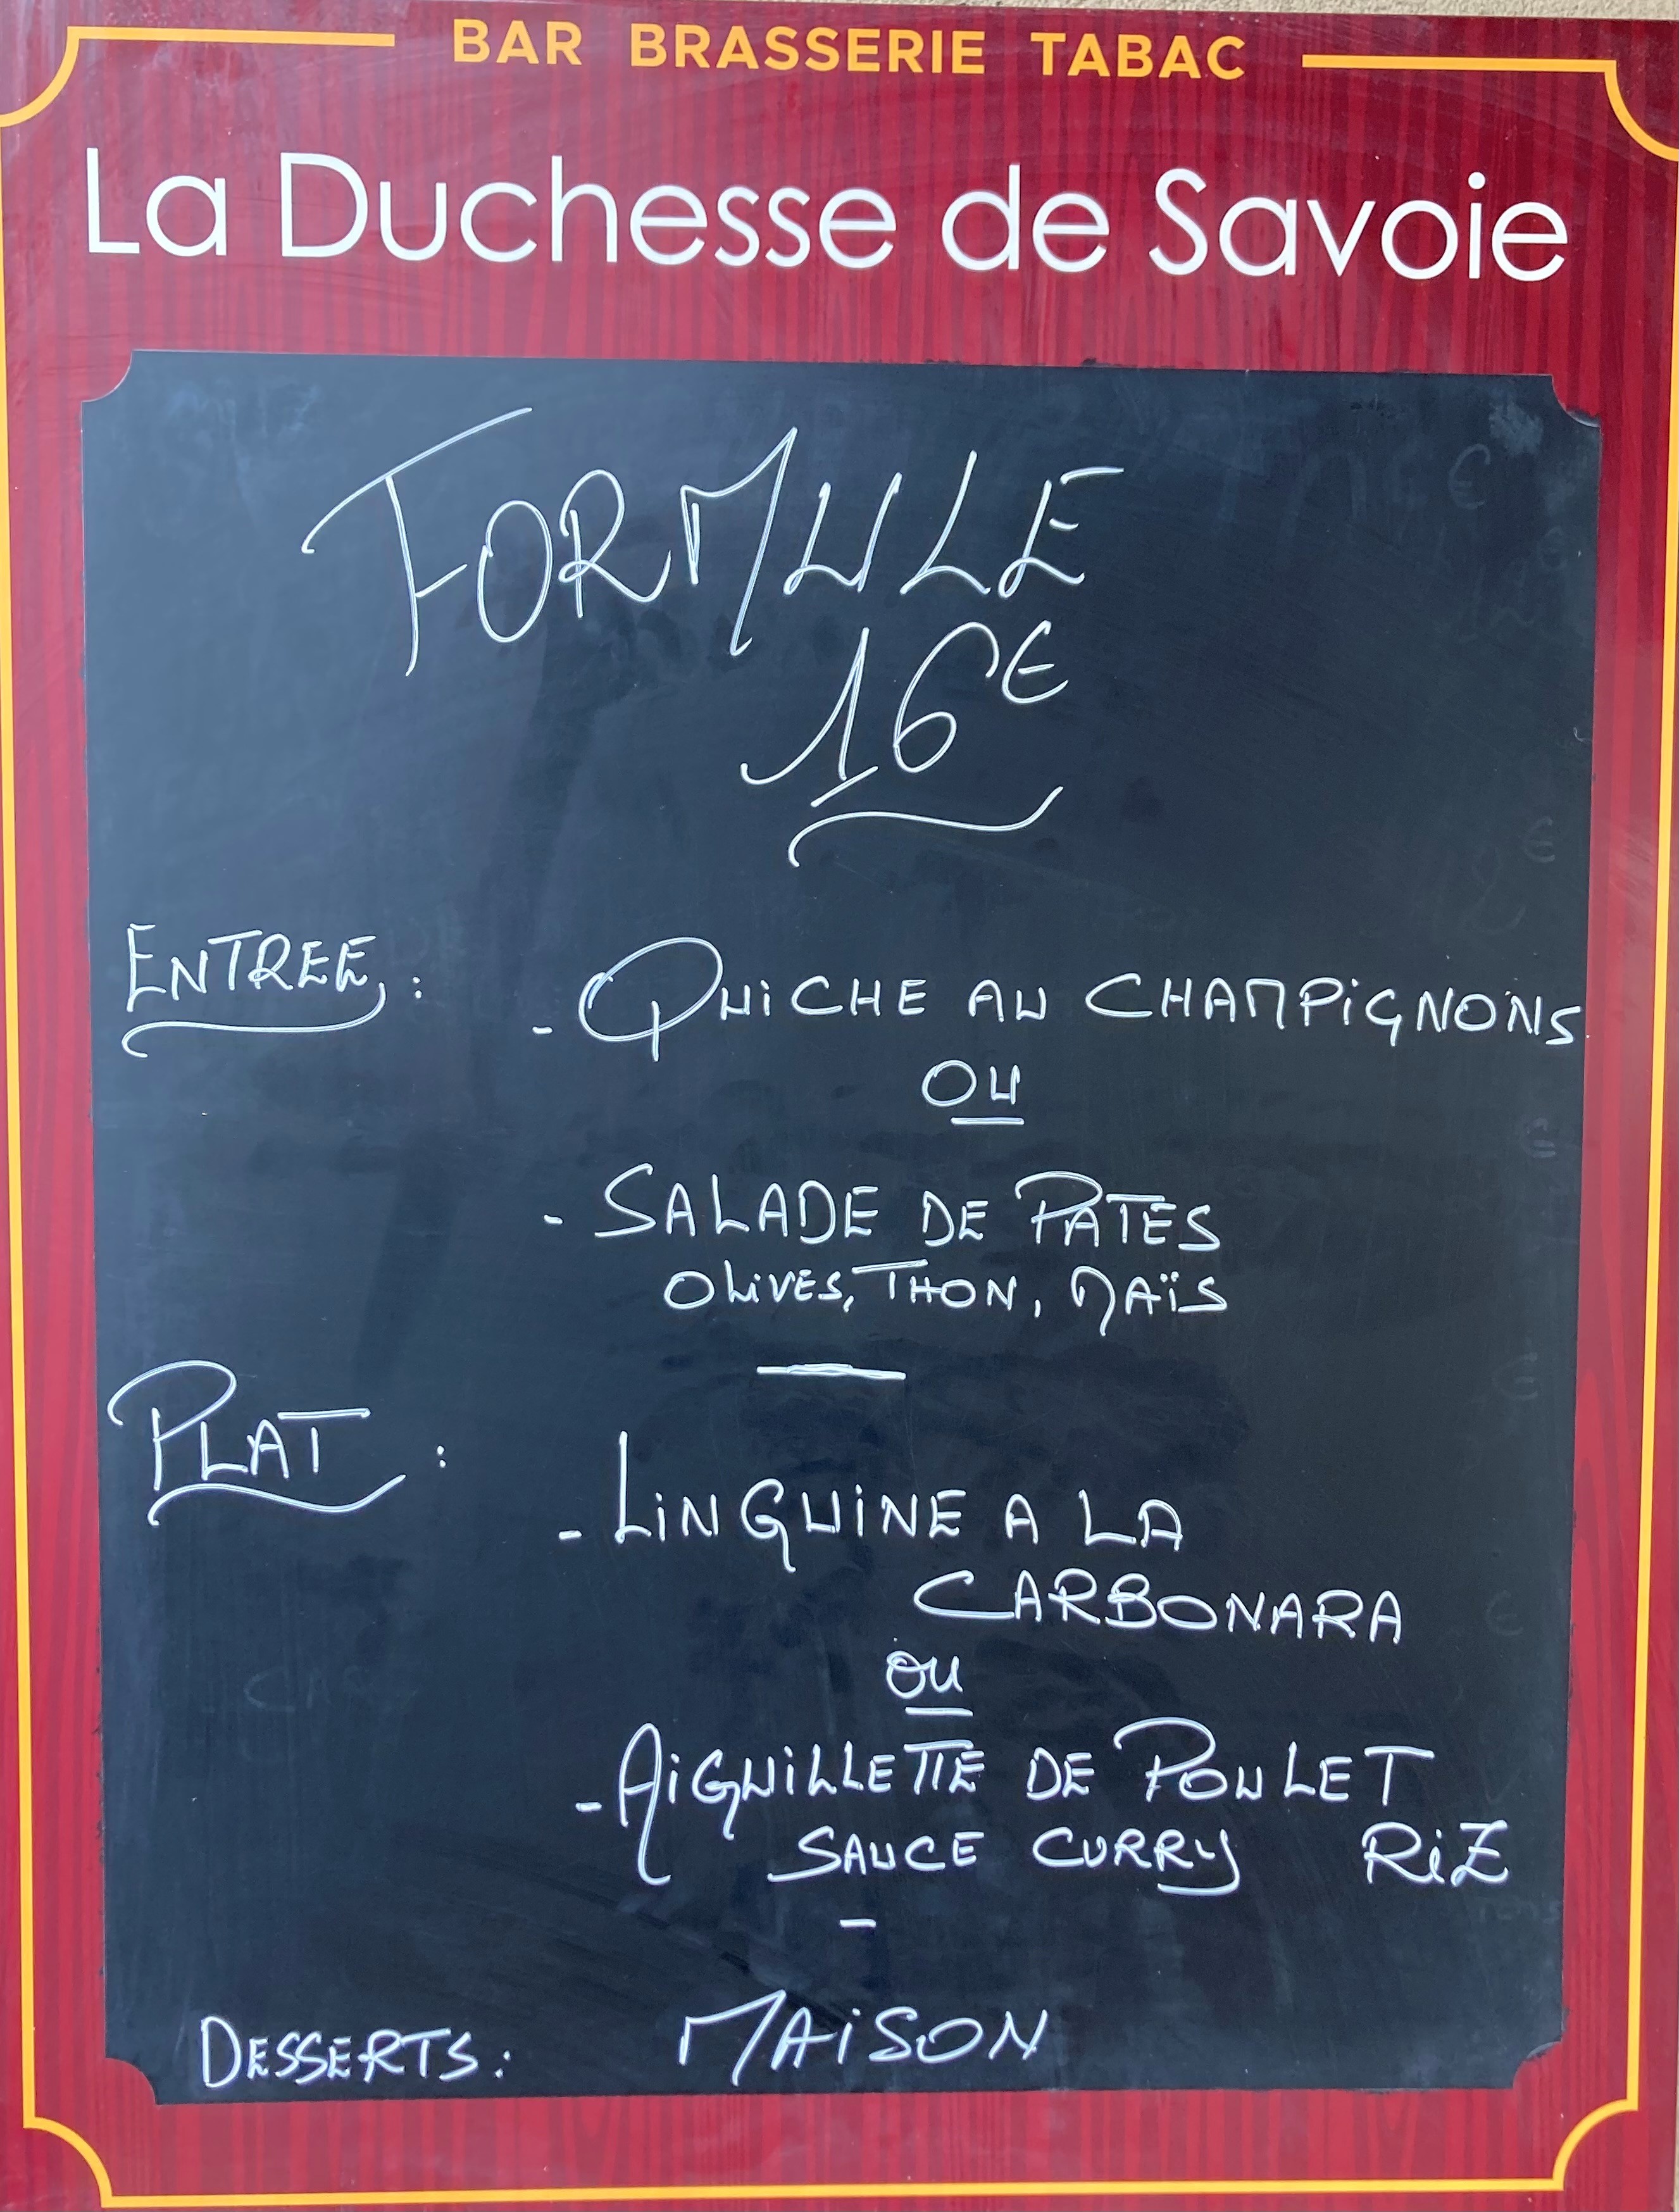 BAR BRASSERIE TABAC
La Duchesse de Savoie
FORMULE
16€
ENTREE : - QUICHE AU CHAMPIGNONS
OU
- SALADE DE PATES
OLIVES, THON, MAÏS
PLAT : - LINGUINE A LA
CARBONARA
ou
- AIGUILLETTE DE POULET
SAUCE CURRY RIZ
DESSERTS : MAISON